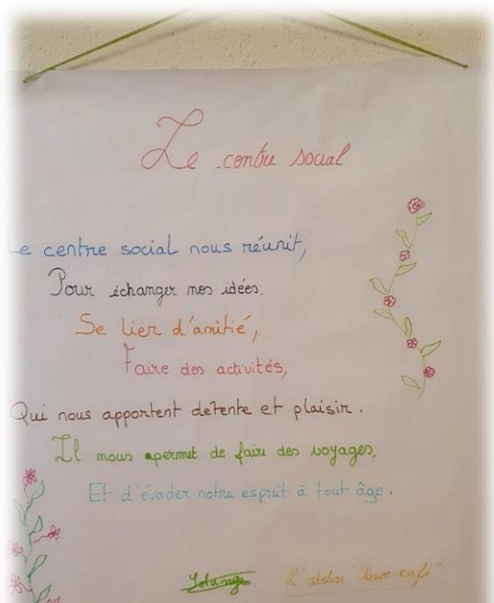 Le centre social
Le centre social nous réunit,
Pour échanger nos idées,
Se lier d'amitié,
Faire des activités,
Qui nous apportent détente et plaisir.
Il nous permet de faire des voyages,
Et d'évader notre esprit à tout âge.
L'atelier "Pause-café"